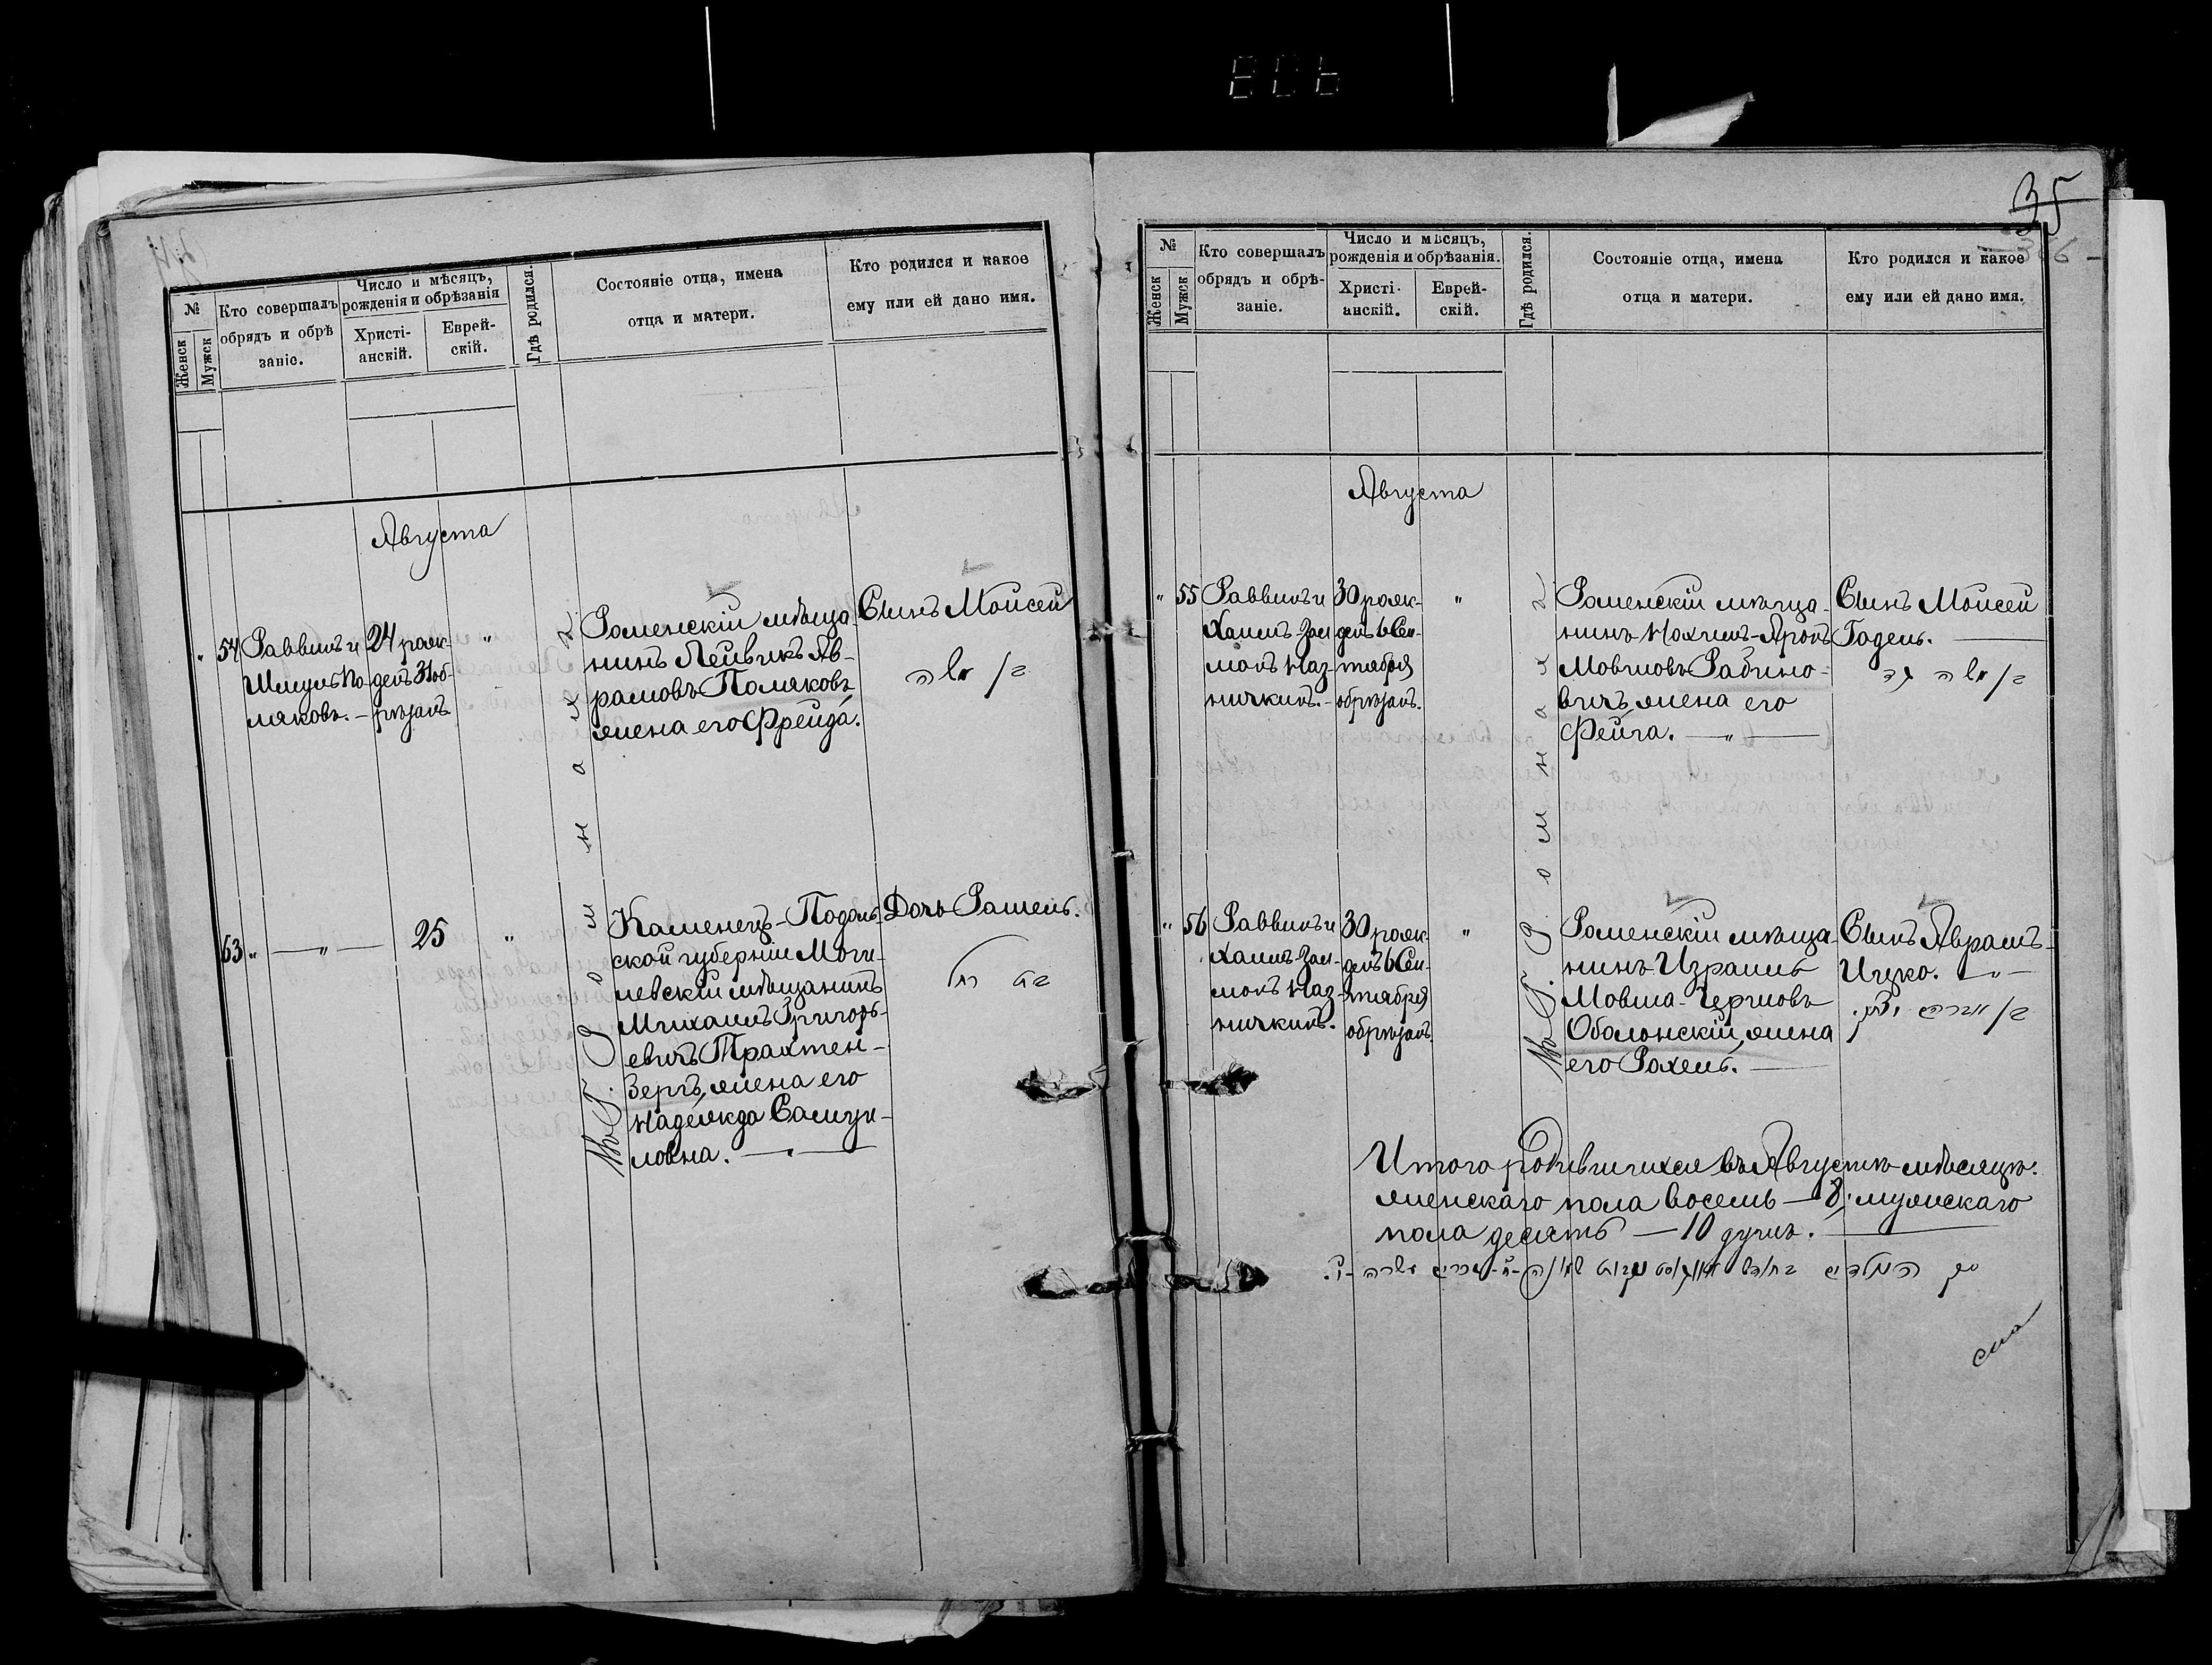 №
Женск
Мужск
Кто совершалъ
обрядъ и обрѣ
заніе.
Число и мѣсяцъ,
рожденія и обрѣзанія
Христі-
анскій.
Еврей-
скій.
Гдѣ родился.
Состояніе отца, имена
отца и матери.
Кто родился и какое
ему или ей дано имя.
Августа
" 54
Раввинъ и
Шмуль По-
ляковъ. —
24 рож-
денъ 31 об-
рѣзанъ
"
Въ г. Ромнахъ
Роменскій мѣща-
нинъ Лейвикъ Ав-
рамовъ Поляковъ
жена его Фрейда.
Сынъ Моисей
ב/ משה
53 "
— " —
25
"
Каменецъ-Подоль-
ской губерніи Моги-
левскій мѣщанинъ
Михаилъ Григорь-
евичъ Трахтен-
бергъ, жена его
Надежда Самуи-
ловна. —
Дочь Рашель.
בת רחל
35
№
Женск
Мужск
Кто совершалъ
обрядъ и обрѣ-
заніе.
Число и мѣсяцъ,
рожденія и обрѣзанія.
Христі-
анскій.
Еврей-
скій.
Гдѣ родился.
Состояніе отца, имена
отца и матери.
Кто родился и какое
ему или ей дано имя.
Августа
" 55
Раввинъ и
Хаимъ-Зал-
монъ Каз-
ничкинъ. —
30 рож-
денъ 6 Сен-
тября
обрѣзанъ.
"
Въ г. Ромнахъ
Роменскій мѣща-
нинъ Нохимъ-Аронъ
Мовшовъ Рабино-
вичъ, жена его
Фейга. — " —
Сынъ Моисей
Гадель. —
ב/ משה גד
" 56
Раввинъ и
Хаимъ-Зал-
монъ Каз-
ничкинъ.
30 рож-
денъ 6 Сен-
тября
обрѣзанъ
"
Роменскій мѣща-
нинъ Израиль
Мовша-Гершовъ
Оболонскій, жена
его Рохель. —
Сынъ Аврамъ-
Ицко. — " —
ב/ אברהם יצחק.
Итого родившихся въ Августѣ мѣсяцѣ:
женскаго пола восемь — 8, мужскаго
пола десять — 10 душъ. —